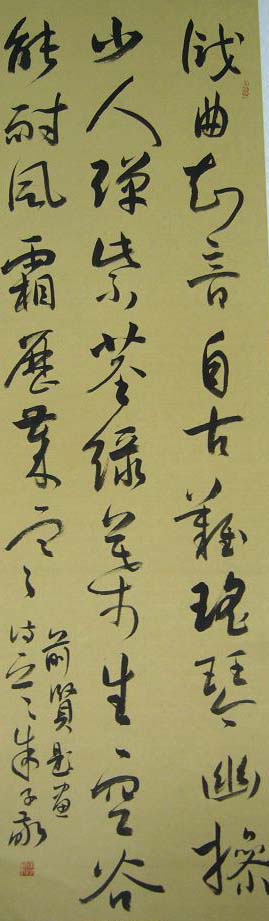 識曲知音自古難瑤琴幽操
少人彈紫莖綠葉生空谷
能耐風霜歷歲寒
前賢題畫
詩